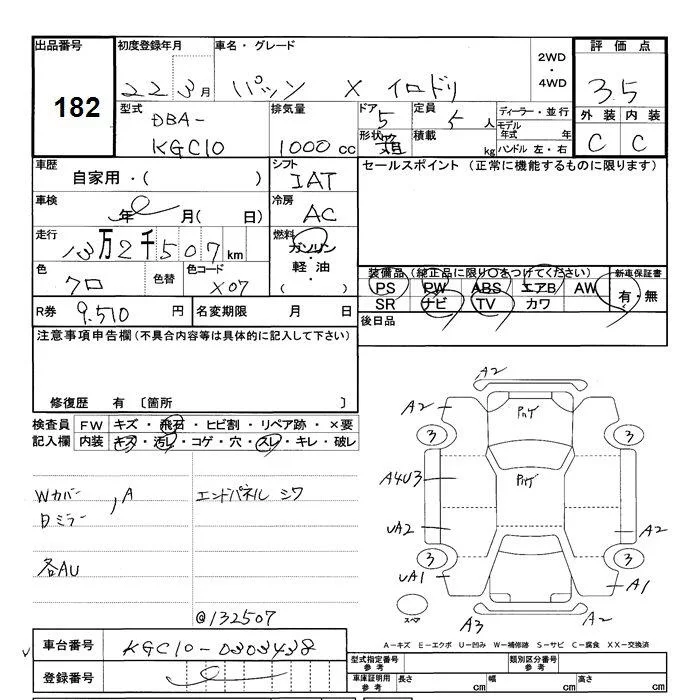 出品番号
182
初度登録年月
22 3月
車名・グレード
パッソ X イロドリ
2WD
・
4WD
評価点
3.5
外装 内装
C C
型式
DBA-
KGC10
排気量
1000 cc
ドア
5
形状
箱
定員
5 人
積載
kg
ディーラー・並行
モデル
年式 年
ハンドル 左・右
車歴
自家用・( )
シフト
IAT
セールスポイント (正常に機能するものに限ります)
車検
年 月( 日)
冷房
AC
走行
13万2千507km
燃料
ガソリン
・
軽油
・
( )
色
クロ
色替
色コード
X07
装備品(純正品に限り○をつけてください)
新車保証書
PS PW ABS エアB AW
SR ナビ TV カワ
有・無
R券 9.510 円
名変期限 月 日
後日品
注意事項申告欄(不具合内容等は具体的に記入して下さい)
修復歴 有 〔箇所 〕
検査員
記入欄
FW キズ・飛石・ヒビ割・リペア跡・×要
内装 キズ・汚レ・コゲ・穴・スレ・キレ・破レ
Wカバー
日ミラー , A
エンドパネル シワ
各AU
@132507
A2
A2
Pハゲ
3 3
A4U3
Pハゲ
UA2
A2
3 3
UA1
A1
スペア
A3
A2
A-キズ E-エクボ U-凹み W-補修跡 S-サビ C-腐食 XX-交換済
車台番号
KGC10-0303438
登録番号
型式指定番号
参考
類別区分番号
参考
車庫証明用
参考
長さ cm
幅 cm
高さ cm